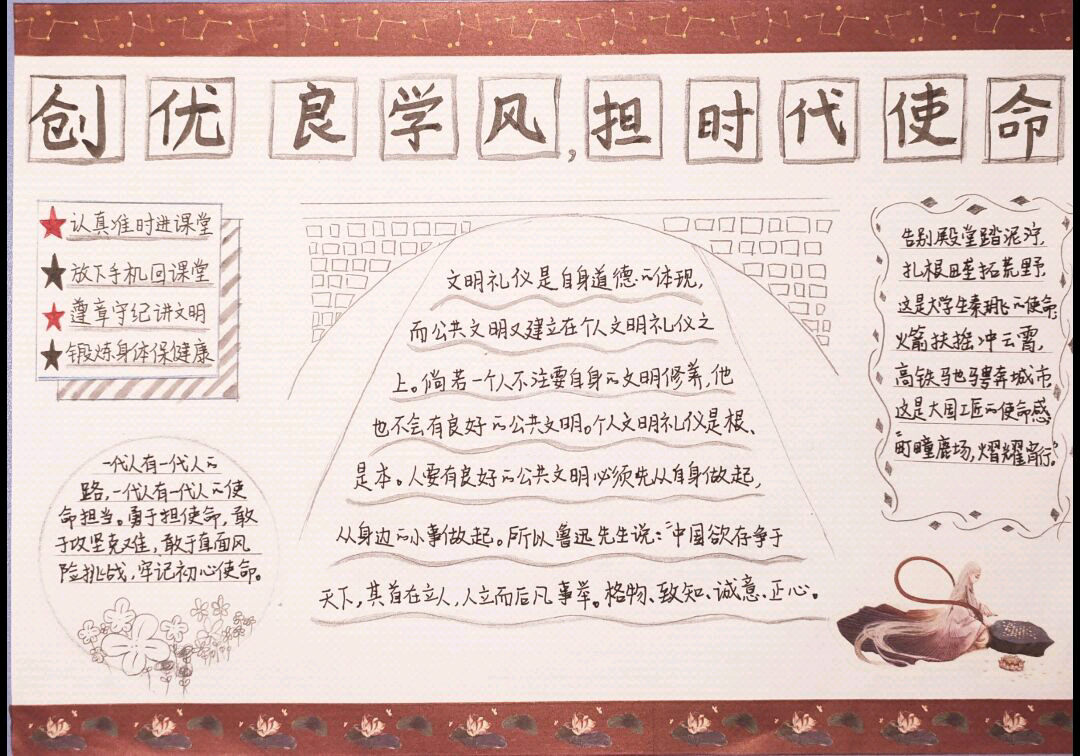 创优良学风,担时代使命
认真准时进课堂
放下手机回课堂
遵章守纪讲文明
锻炼身体保健康
一代人有一代人的
路,一代人有一代人的使
命担当。勇于担使命,敢
于攻坚克难,敢于直面风
险挑战,牢记初心使命。
文明礼仪是自身道德的体现,
而公共文明又建立在个人文明礼仪之
上。倘若一个人不注要自身的文明修养,他
也不会有良好的公共文明。个人文明礼仪是根、
是本。人要有良好的公共文明必须先从自身做起,
从身边的小事做起。所以鲁迅先生说:“中国欲存争于
天下,其首在立人,人立而后凡事举。格物、致知、诚意、正心。
告别殿堂踏泥泞,
扎根田垄拓荒野,
这是大学生秦玥飞的使命;
火箭扶摇冲云霄,
高铁驰骋奔城市,
这是大国工匠的使命感;
“町疃鹿场,熠耀宵行。”